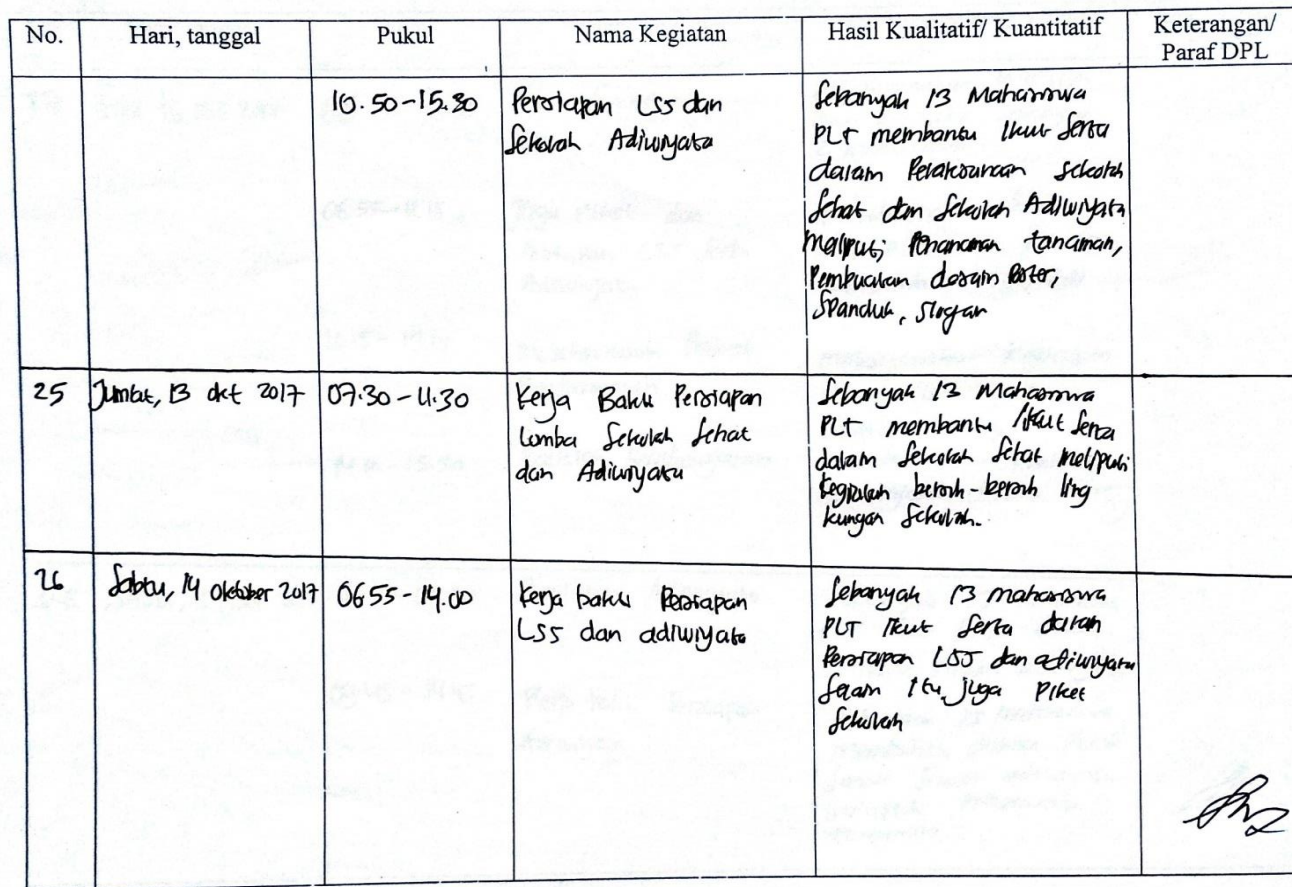 No. Hari, tanggal Pukul Nama Kegiatan Hasil Kualitatif/ Kuantitatif Keterangan/
Paraf DPL
10.50-15.30 Persiapan LSS dan
Sekolah Adiwiyata
Sebanyak 13 Mahasiswa
PLT membantu ikut serta
dalam Pelaksanaan sekolah
Sehat dan Sekolah Adiwiyata
meliputi Penanaman tanaman,
Pembuatan desain Poster,
Spanduk, slogan
25 Jumat, 13 okt 2017 07.30-11.30 Kerja Bakti Persiapan
Lomba Sekolah Sehat
dan Adiwiyata
Sebanyak 13 Mahasiswa
PLT membantu ikut serta
dalam Sekolah Sehat meliputi
kegiatan bersih-bersih ling
kungan Sekolah.
26 Sabtu, 14 oktober 2017 0655-14.00 Kerja bakti Persiapan
LSS dan adiwiyata
Sebanyak 13 mahasiswa
PLT ikut serta dalam
Persiapan LSS dan adiwiyata
selain itu juga Piket
Sekolah